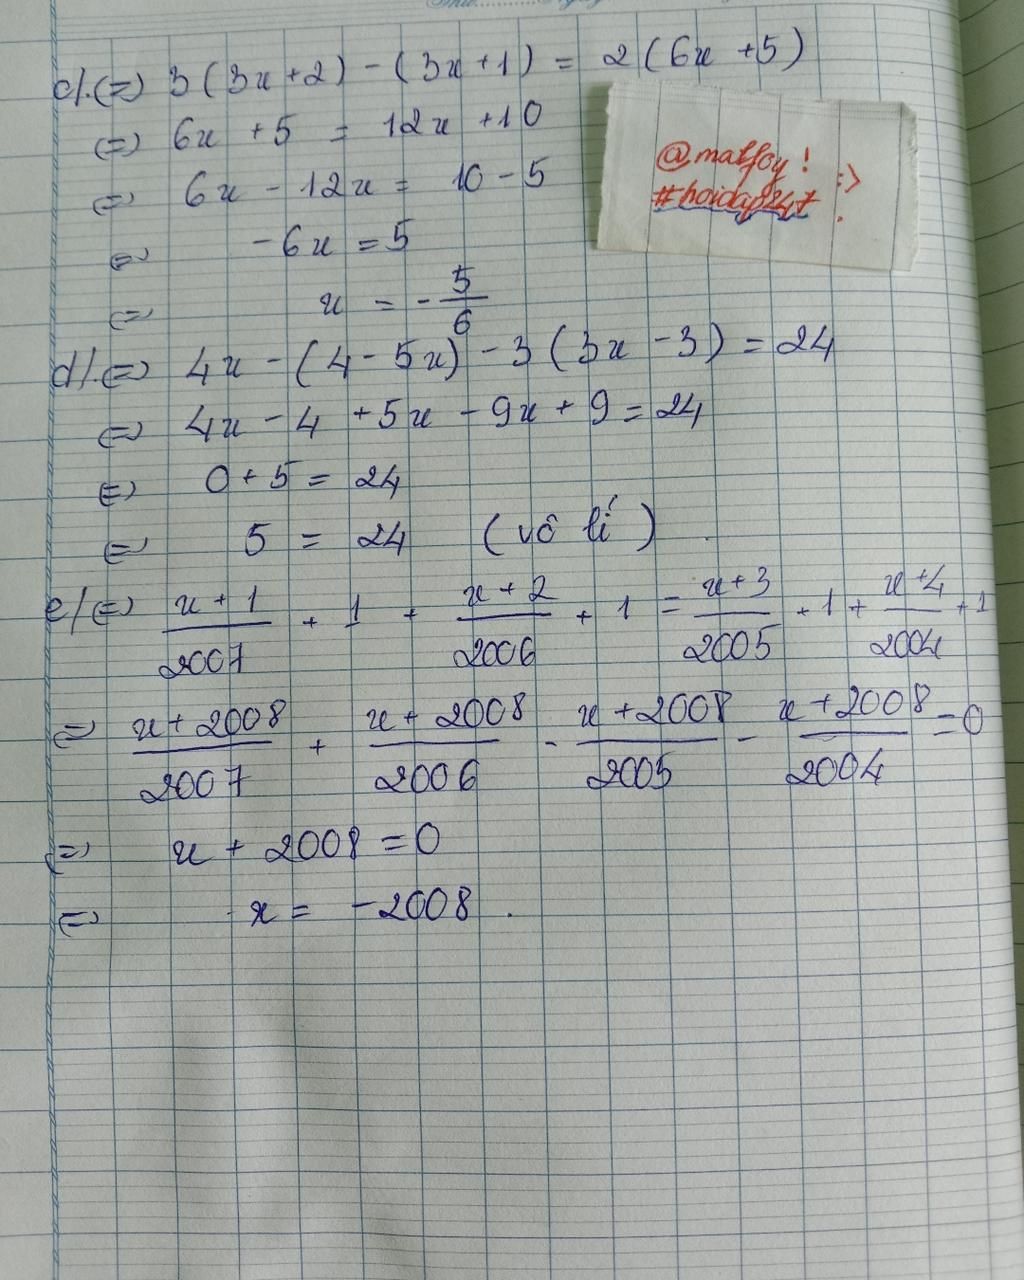 c/. (=) 3(3x+2) - (3x+1) = 2(6x+5)
(=) 6x + 5 = 12x + 10
(=) 6x - 12x = 10 - 5
(=) -6x = 5
(=) x = -5/6
@malfoy! :>
#hoidap247
d/. (=) 4x - (4 - 5x) - 3(3x - 3) = 24
(=) 4x - 4 + 5x - 9x + 9 = 24
(=) 0 + 5 = 24
(=) 5 = 24 (vô lí)
e/ (=) x+1/2007 + 1 + x+2/2006 + 1 = x+3/2005 + 1 + x+4/2004 + 1
(=) x+2008/2007 + x+2008/2006 - x+2008/2005 - x+2008/2004 = 0
(=) x + 2008 = 0
(=) x = -2008.